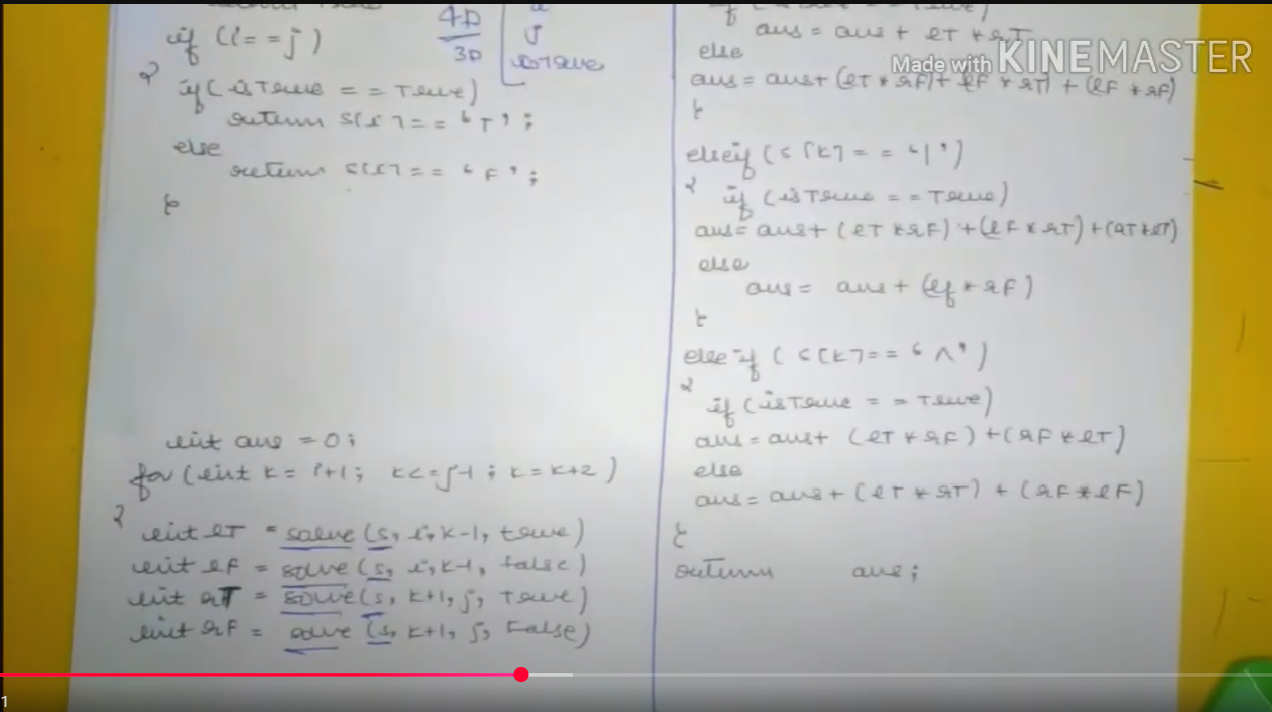 if (i==j)
{
if (isTrue == True)
return s[i] == 'T';
else
return s[i] == 'F';
}
4D
3D
i
j
isTrue
int ans = 0;
for (int k = i+1; k<=j-1; k=k+2)
{
int lT = solve (s, i, k-1, true)
int lF = solve (s, i, k-1, false)
int rT = solve (s, k+1, j, True)
int rF = solve (s, k+1, j, False)
ans = ans + lT * rT
else
ans = ans + (lT * rF) + lF * rT) + (lF * rF)
}
else if (s[k] == '|')
{
if (isTrue == True)
ans = ans + (lT * rF) + (lF * rT) + (rT * lT)
else
ans = ans + (lf * rF)
}
else if (s[k] == '^')
{
if (isTrue == True)
ans = ans + (lT * rF) + (rF * lT)
else
ans = ans + (lT * rT) + (rF * lF)
}
return ans;
Made with KINEMASTER
1